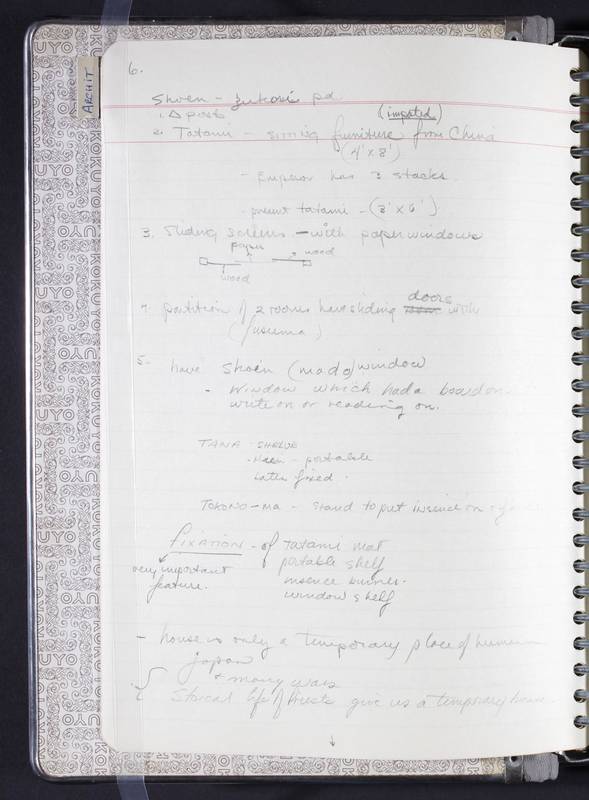 6.
ARCHIT
Shoen - zukuri pd
1. Δ posts
(imported)
2. Tatami - sitting furniture from China
(4' x 8')
- Emperor has 3 stacks.
- present tatami - (3' x 6')
3. Sliding screens - with paper windows
paper
wood
wood
4. partition of 2 rooms have sliding doors with
(fusuma)
5. have Shoin (mado) window
- window which had a board on
write on or reading on.
TANA - SHELVE
. Heen - portable
Later fixed.
TOKONO-MA - stand to put insence on
FIXATION - of tatami mat
very important
portable shelf
feature.
insence burner.
window shelf
- house is only a temporary place of human
japan
+ many wars
Stoical life of Priests give us a temporary house
↓